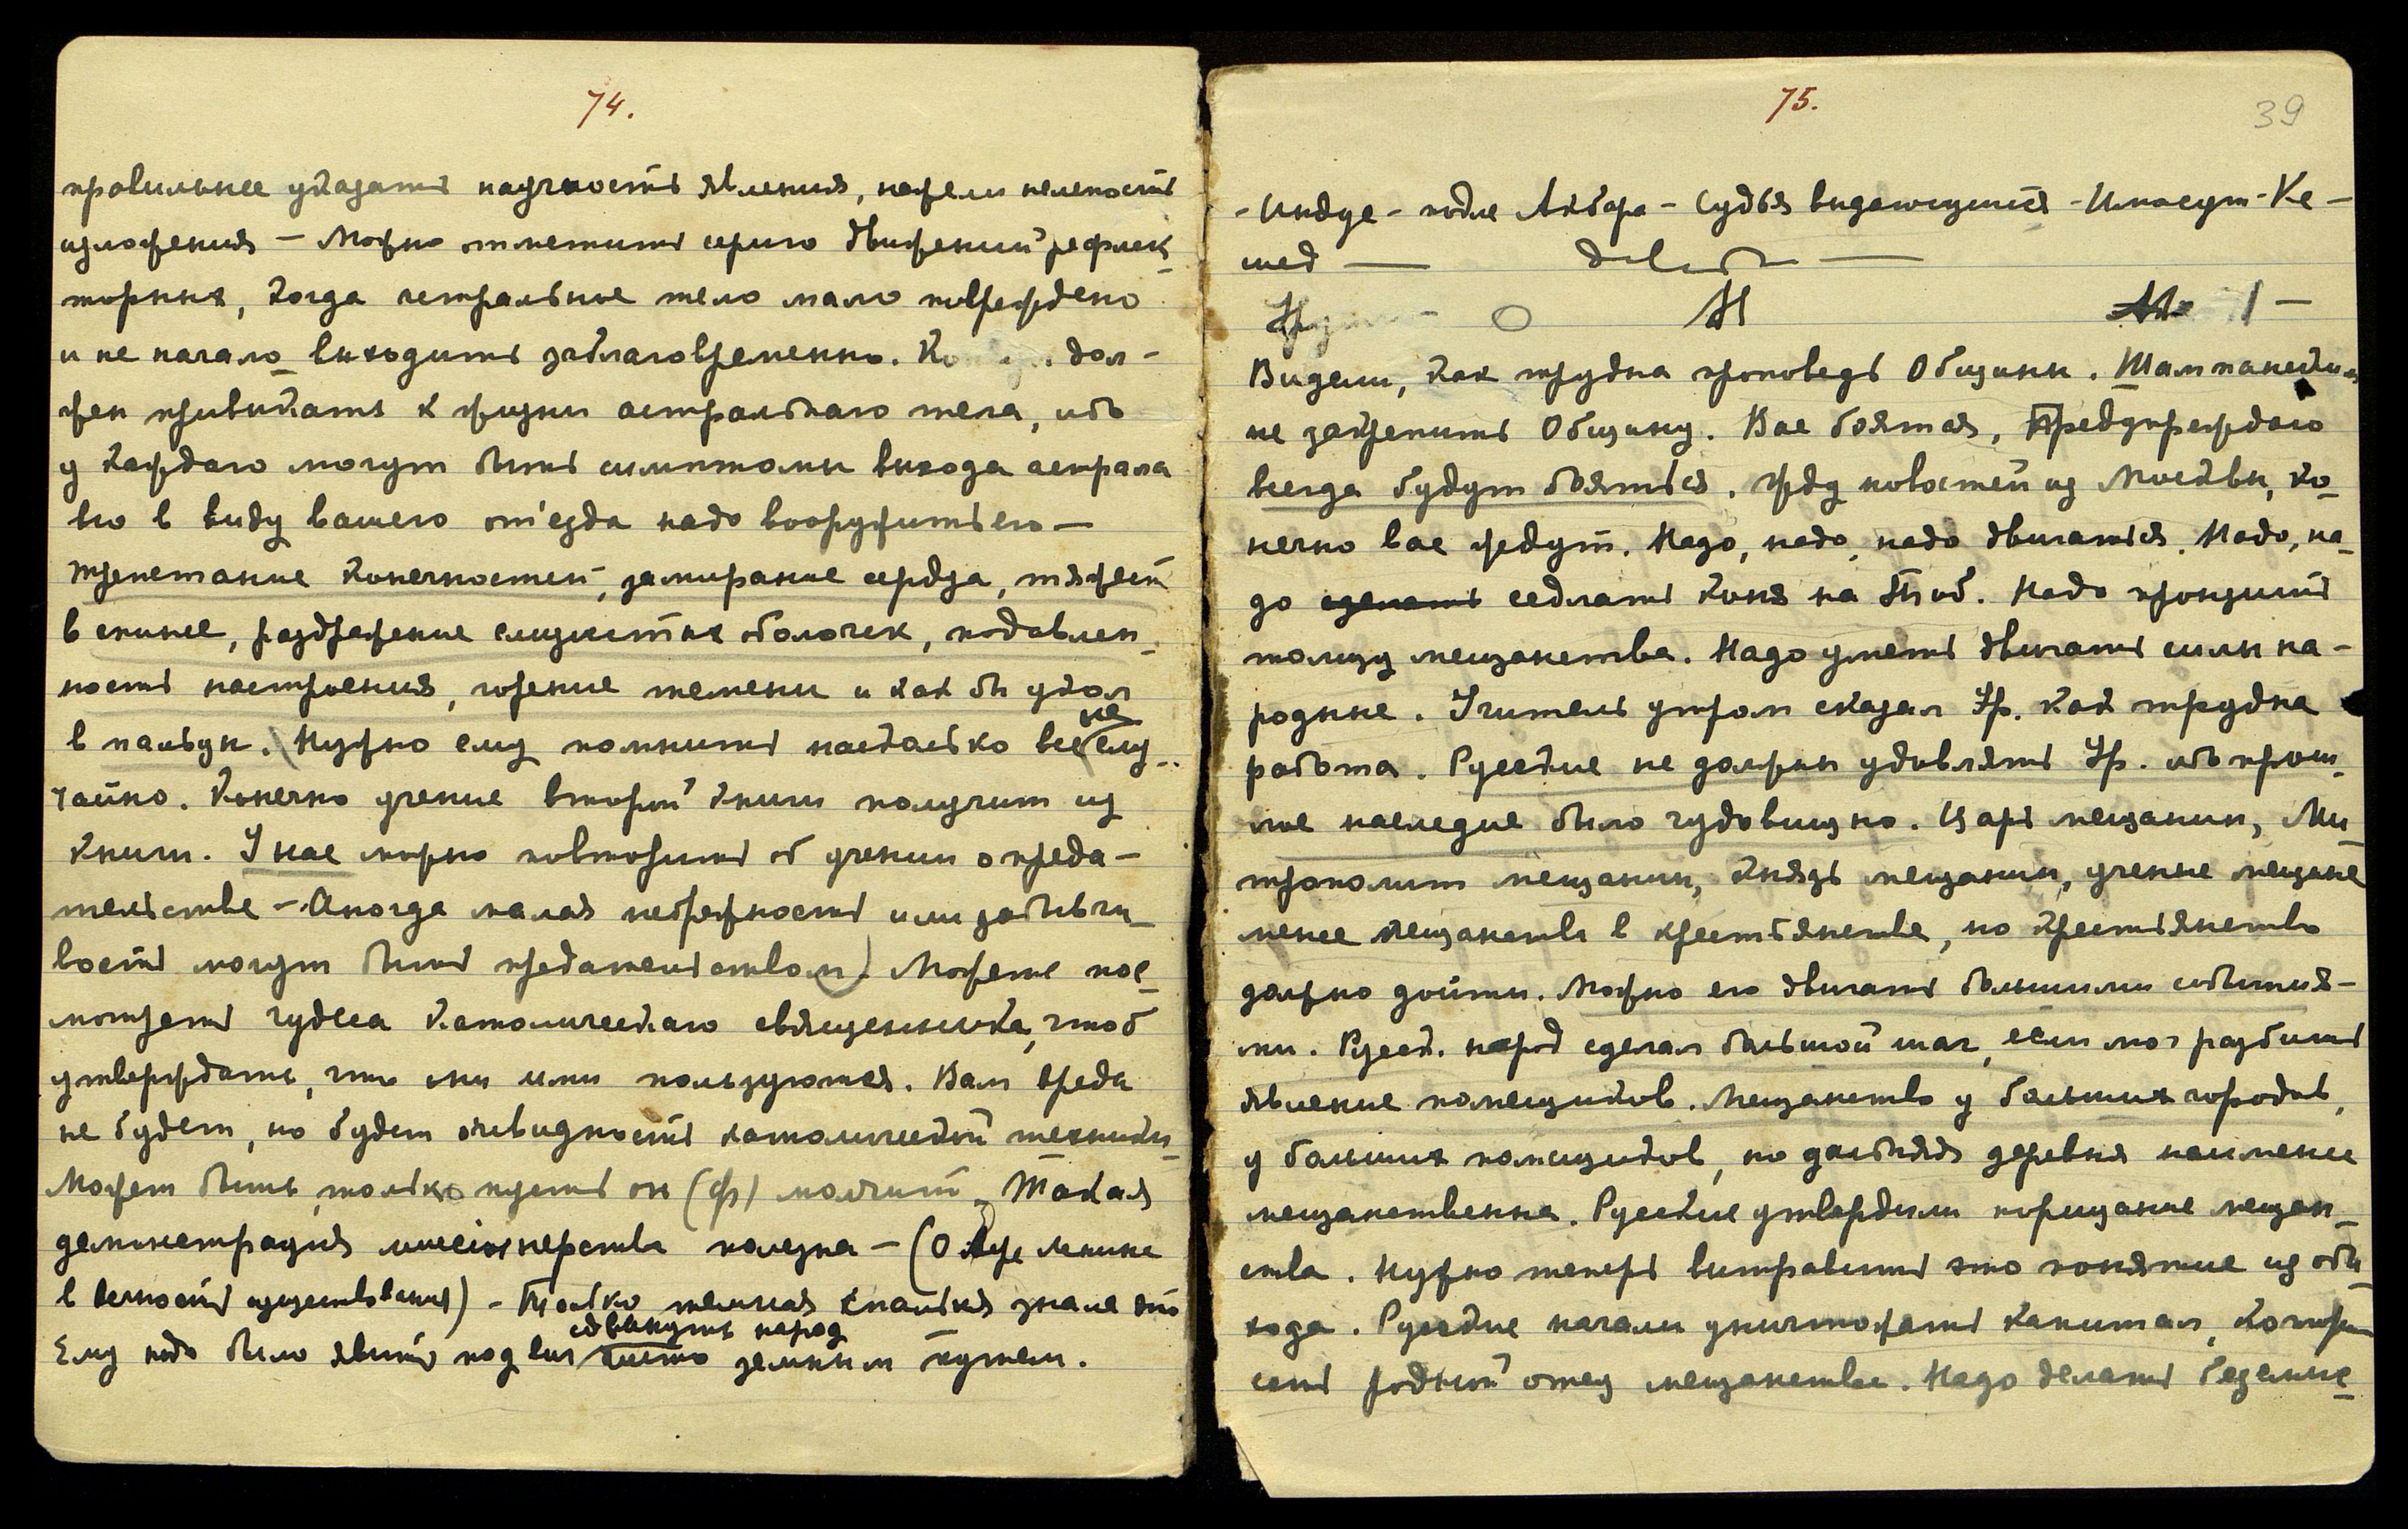 74.
правильнее указать научность явления, нежели нелепость
изложения — Можно отметить серию движений рефлек-
торных, когда астральное тело мало повреждено
и не начало выходить заблаговременно. дол-
жен привыкать к жизни астрального тела, ибо
у каждаго могут быть симптомы выхода астрала
но в виду вашего от'езда надо вооружить его —
трепетание конечностей, замирание сердца, тяжест
в спине, раздражение слизистых оболочек, подавлен-
ность настроения, горение темени и как бы укол
не
в пальцы. Нужно ему помнить насколько все слу-
чайно. Конечно учение второй книги получит из
книги. У нас можно повторить об учении о преда-
тельстве — Иногда малая небрежность или забывчи-
вость могут быть предательством) Можете пос-
мотреть чудеса католическаго священника, чтоб
утверждать, что мы ими пользуются. Вам вреда
не будет, но будет очевидность католической техники
Может быть, только пусть он (ф) молчит. Такая
демонстрация миссионерства полезна — (О Ленине
в вечности существования) — Только темная знала это
сдвинуть народ
Ему надо было явить под вид чисто земным путем.
75.
39
- Индус - подле Акбара - Судья выдающийся - Имасут - Ке -
мед —
О Н
Видели, как трудна проповедь Общины. Шампанским
не закрепить Общину. Вас боятся, Предупреждаю
всегда будут бояться. Жду новостей из Москвы, ко-
нечно вас ждут. Надо, надо, надо двигаться. Надо, на-
до сделать седлать коня на Тиб. Надо пронзить
толщу мещанства. Надо уметь двигать силы на-
родные. Учитель утром сказал Ур. как трудна
работа. Русские не должны удивлять Ур. ибо прош-
лое наследие было чудовищно. Царь мещанин, Ми-
трополит мещанин, Князь мещанин, ученые мещане
менее мещанства в крестьянстве, но крестьянство
должно дойти. Можно его двигать большими события-
ми. Русск. народ сделал большой шаг, если мог разбить
явление помещиков. Мещанство у больших городов,
у больших помещиков, но дальняя деревня наименее
мещанственна. Русские утвердили порицание мещан-
ства. Нужно теперь вытравить это понятие из оби-
хода. Русские начали уничтожать капитал, который
есть родной отец мещанства. Надо делать безвые